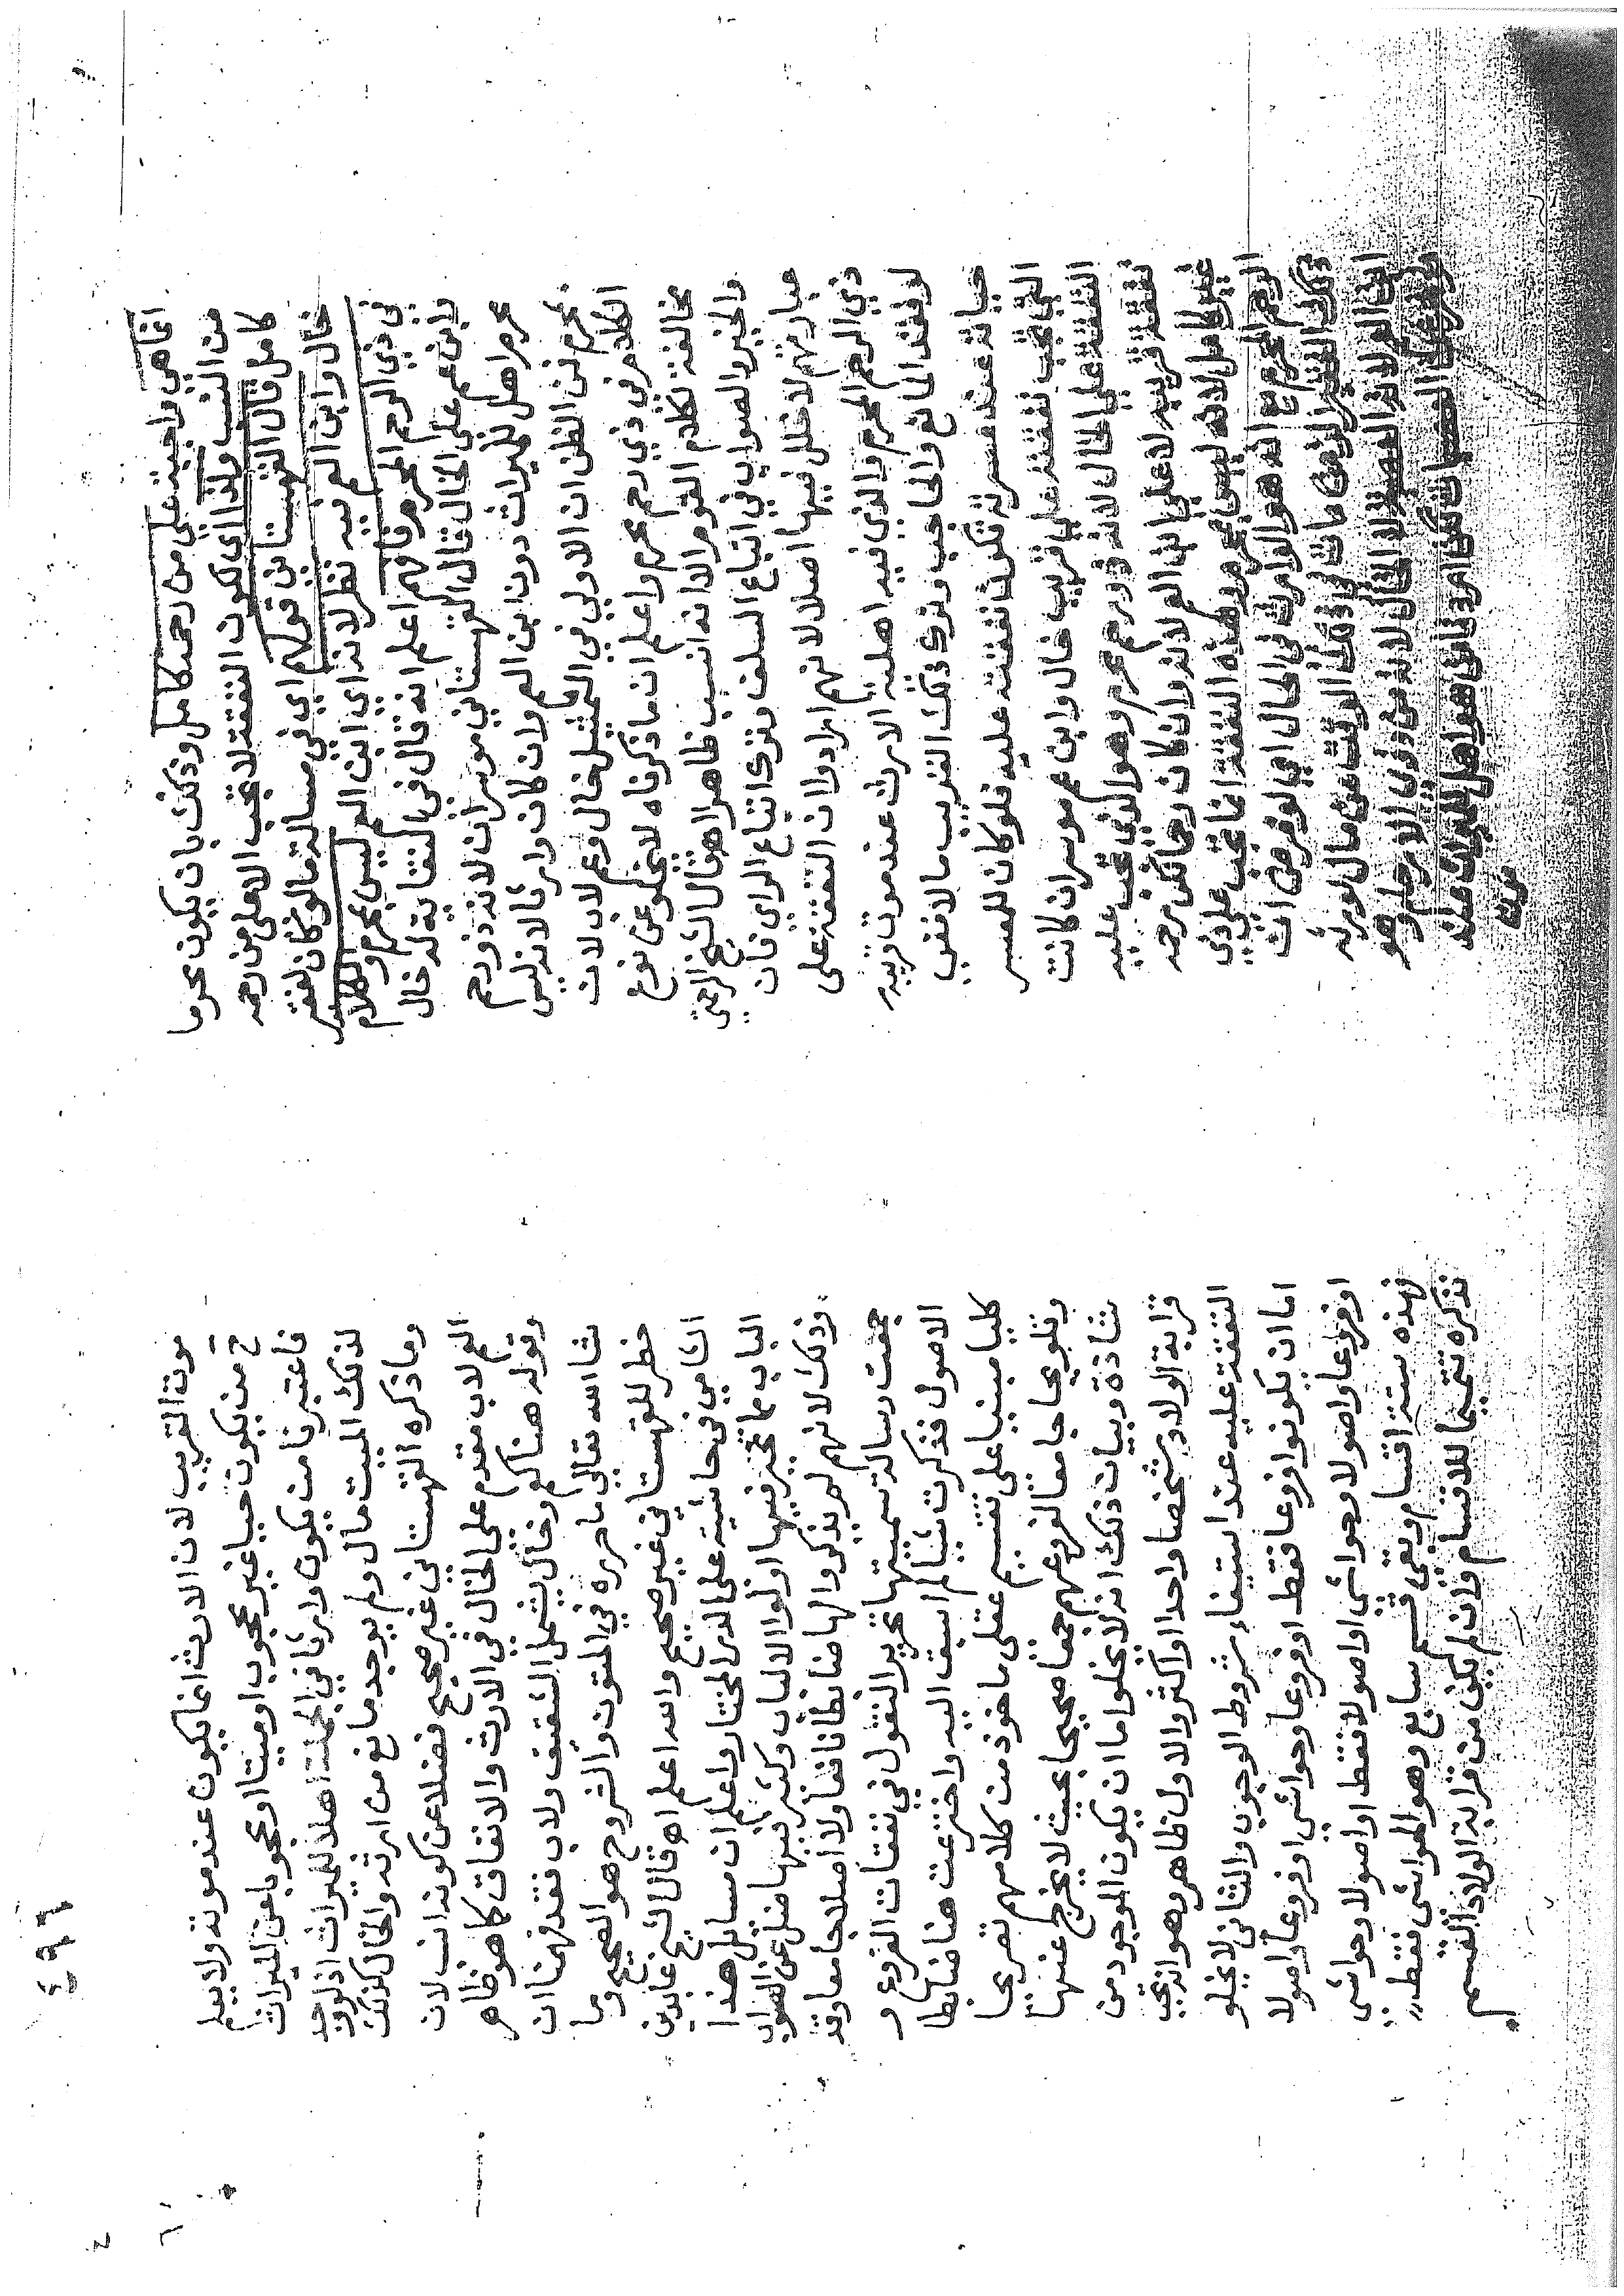 انما هي واجبة على من رحمه كامل وذلك بان يكون محرما
من النسب ولذا اي لكون النفقة لا تجب الا على من رحمه
كامل قال القهستاني قولهم اي في مسالة ما لو كان للفقير
خال وابن العم فيه نظر لانه اي ابن العم ليس بمحرم والكلام
في ذي الرحم المحرم فافهم اعلم انه قال في النقاية له خال
وابن عم على الخال قال القهستاني موسران لانه ذو رحم
محرم اهل للميراث دون ابن العم وان كان وارثا لانه ليس
بمحرم فمن الظن ان الاولى في التمثيل خال وعم لاب لان
الكلام في ذي رحم محرم واعلم ان ما ذكرناه لا يخلو عن نوع
مخالفة لكلام القوم الا انه انسب ظاهرا اه قال الشيخ الرحمتي
والخير والصواب في اتباع السلف وترك اتباع الراي فان
عبارتهم لا خلل فيها اصلا لانهم ارادوا ان النفقة على
ذي الرحم المحرم والذي فيه اهلية الارث عند موت قريبه
لو فقد المانع والحاجب وترك ذلك القريب مالا ففي
حياته عند عسرته تكون نفقته عليه فلو كان للمعسر
الذي تجب نفقته على قريب خال وابن عم موسران كانت
النفقة على الخال لانه ذو رحم محرم وهو الذي تجب عليه
نفقة قريبه لا على ابن العم لانه وان كان رحما لكن رحمه
غير كامل لانه ليس بمحرم وهذه النفقة انما تجب على ذي
الرحم المحرم مع انه هو الوارث في الحال اي لو فرض ان
ذلك الفقير الزمن مات في ذلك الوقت عن مال لورثه
ابن العم لانه العصبة لا الخال لانه من ذوي الارحام وهو
مؤخر عن العصبات لكن اعتبرنا من هو اهل للميراث عند
موته
٤٩٩
موت القريب لان الارث انما يكون عند موته ولا يعلم
ح من يكون حيا غير محجوب او ميتا او محجوبا عن الميراث
فاعتبرنا من يكون وارثا في الجملة اهلا للميراث اذ لو وجد
لذلك الميت مال ولم يوجد مانع من ارثه والخال كذلك
وما ذكره القهستاني غير صحيح فضلا عن كونه انسب لان
العم لاب مقدم على الخال في الارث والانفاق كما هو ظاهر
وقوله هنا كعم وخال يشمل الشقيق ولاب فقد فهمنا ان
شا الله تعالى ما حرره في المتون والشروح هو الصحيح وما
خطر للقهستاني غير صحيح والله اعلم اه قال الشيخ عابدين
الشامي في حاشيته على الدر المختار واعلم ان مسايل هذا
الباب مما تحير فيها اولوا الالباب وكثر فيها ضل عن الصواب
وذلك لانهم لم يذكروا لها ضابطا نافعا ولا اصلا جامعا وقد
جمعت رسالة سميتها تحرير النقول في نفقات الفروع و
الاصول فذكرت شيئا لم اسبق اليه واخترعت هنا ضابطا
كليا مبنيا على تقسيم عقلي ماخوذ من كلامهم تصريحا
وتلويحا جامعا لفروعهم جمعا صحيحا بحيث لا يخرج عنها
شاذة وبيان ذلك انه لا يخلوا ما ان يكون الموجود من
قرابة الولاد شخصا واحدا او اكثر والاول ظاهر وهو انه تجب
النفقة عليه عند استيفاء شروط الوجوب والثاني لا يخلو
اما ان يكونوا فروعا فقط او فروعا وحواشي او فروعا واصولا
او فروعا واصولا وحواشي او اصولا فقط او اصولا وحواشي
فهذه ستة اقسام وبقي قسم سابع وهو الحواشي فقط
نذكره تتميما للاقسام وان لم يكن من قرابة الولاد القسم